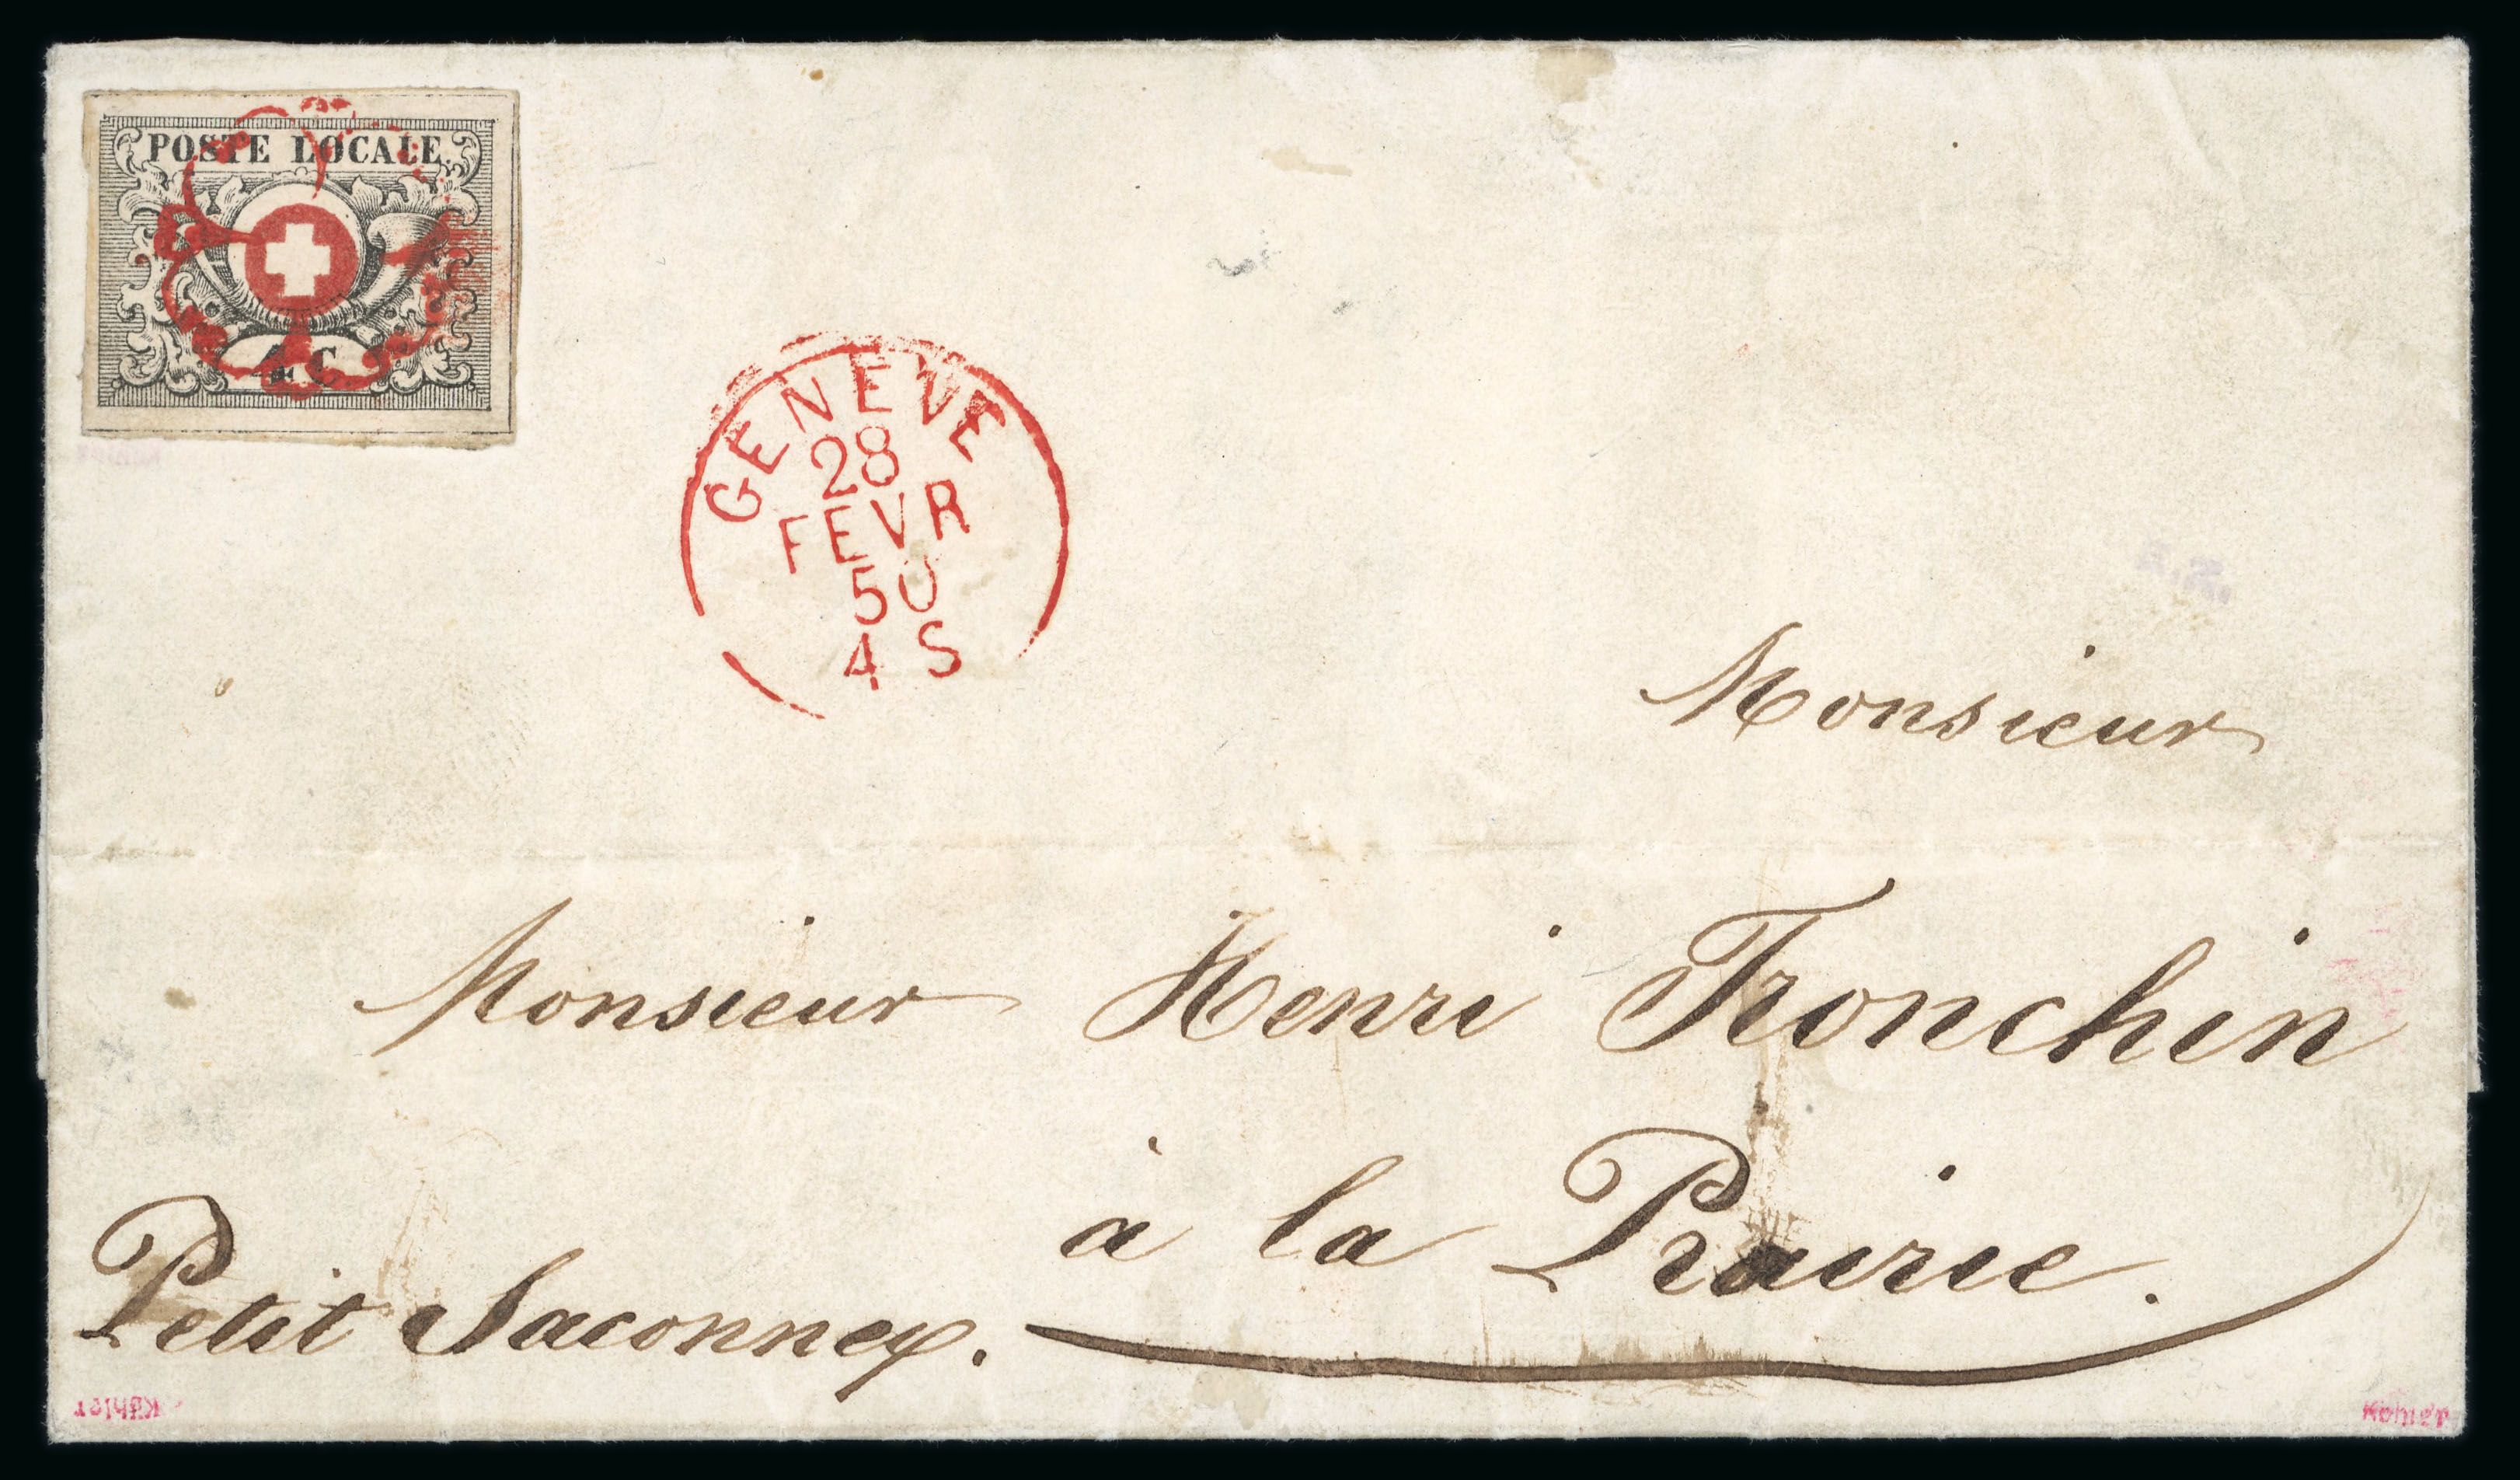 POSTE LOCALE.
4 C
GENEVE
28
FEVR
50
4 S
Monsieur
Monsieur Henri Tronchin
à la Prairie.
Petit Saconnex.
Köhler
Köhler